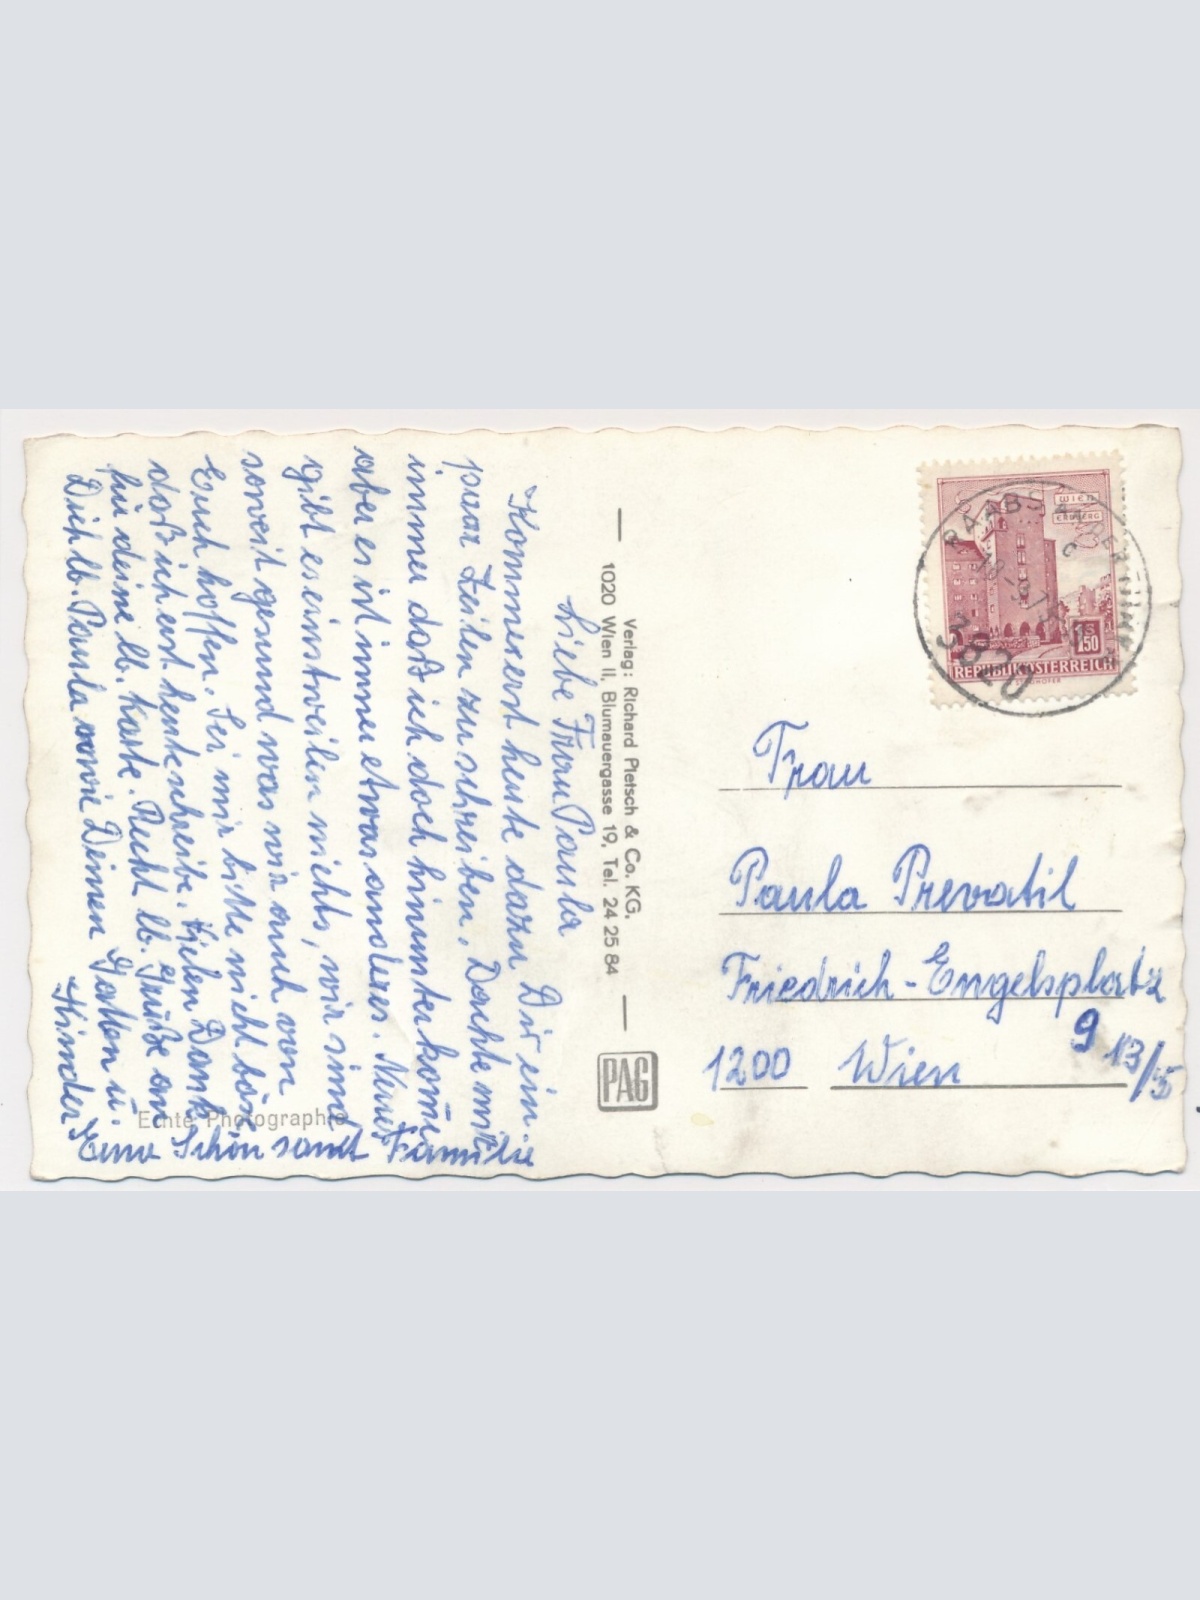 Liebe Frau Paula
Komme erst heute dazu Dir ein
paar Zeilen zu schreiben. Dachte mir
immer daß ich doch hinunterkomē
aber es ist immer etwas anderes. Neues
gibt es einstweilen nichts, wir sind
soweit gesund was wir auch von
Euch hoffen. Sei mir bitte nicht bös
daß ich erst heute schreibe. Vielen Dank
für deine lb. Karte. Recht lb. Grüße an
Dich lb. Paula sowie Deinen Gatten u.
Kinder
Schön samt Familie
Echte Photographie
Verlag: Richard Pietsch & Co. KG.
1020 Wien II, Blumauergasse 19, Tel. 24 25 84
PAG
WIEN
ERDBERG
S 1.50
REPUBLIK ÖSTERREICH
RAABS AN DER THAYA
c
3820
Frau
Paula Prevatil
Friedrich-Engelsplatz
9 13/5
1200 Wien